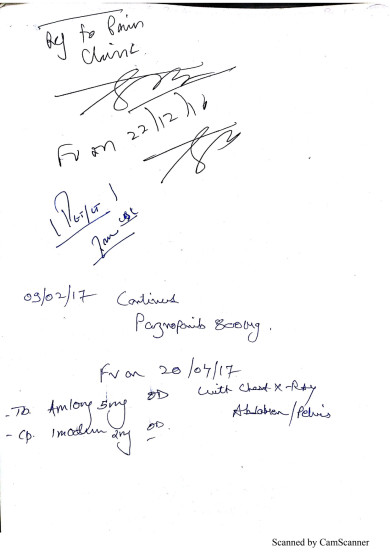 Ref to Pain
Clinic.
Fv on 22/12/16
09/02/17 Continued
Paznopanib 800mg.
Fv on 20/04/17
with Chest X-Ray
- Tb. Amlong 5mg OD
Abdomen/Pelvis
- Cp. Imodium 2mg OD.
Scanned by CamScanner